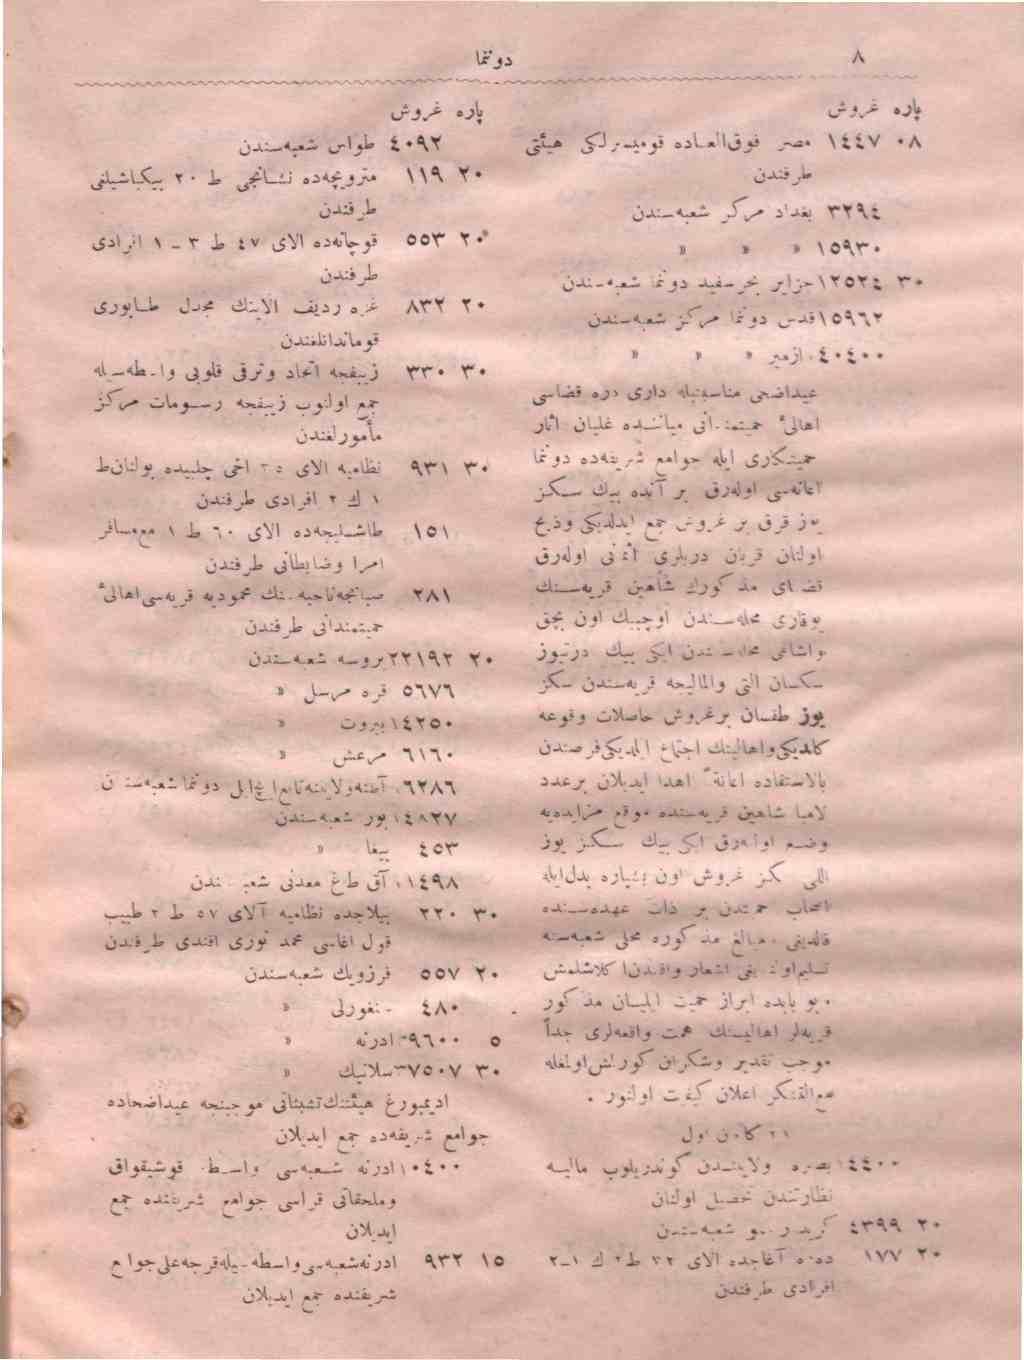 ٨
دوننما
پاره غروش
٠٨ ١٤٤٧ مصر فوق‌العاده قومیسرلکی هیئتی
طرفندن
٣٢٩٤ بغداد مرکز شعبه‌سندن
١٥٩٣٠ » » »
٣٠ ١٢٥٢٤ جزایر بحرسفید دوننما شعبه‌سندن
١٥٩٦٢ قدس دوننما مرکز شعبه‌سندن
٤٠٤٠٠ ازمیر » » »
عیداضحی مناسبتیله داری دره قضاسی
اهالئ حمیتمندانی میاننده غلیان آثار
حمیتکاری ایله جوامع شریفه‌ده دوننما
اعانه‌سی اوله‌رق بر آنده بیك سکز
یوز قرق بر غروش جمع ایدلدیکی وذبح
اولنان قربان دریلری آثمانی اوله‌رق
قضای مذکورك شاهین قریه‌سنك
یوقاری محله‌سندن اوچبیك اون بچق
واشاغی محله‌سندن ایکی بیك درتیوز
سکسان التی والمالیجه قریه‌سندن سکز
یوز طقسان برغروش حاصلات وقوعه
کلدیکی واهالینك اجتماع ایلدیکی فرصتدن
بالاستفاده اعانةً اهدا ایدیلان برعدد
لامبا شاهین قریه‌سنده موقع مزایده‌یه
وضع اوله‌رق ایکی بیك سکز یوز
اللی سکز غروش اون بشپاره بدل‌ایله
اصحاب حمیتدن بر ذات عهده‌سنده
قالدیغی مبالغ مذکوره محلی شعبه‌سنه
تسلیم اولندیغی اشعار واقعدن اکلاشلمش
وبو بابده ابراز حمیت ایلیان مذکور
قریه‌لر اهالیسنك همت واقعه‌لری جداً
موجب تقدیر وشکران کورلمش اولغله
مع‌التشکر اعلان کیفیت اولنور .
٢١ کانون اول
١٤٤٠٠ بصره ولایتندن کوندریلوب مالیه
نظارتندن تحصیل اولنان
٢٠ ٤٣٩٩ شعبه‌سندن
٢٠ ١٧٧ آغاجده الای ٣٢ ط ٢ ك ١-٢
افرادی طرفندن
پاره غروش
٤٠٩٢ طواس شعبه‌سندن
٢٠ ١١٩ متروپچه‌ده نشانجی ط ٢٠ بیکباشیلغی
طرفندن
٢٠ ٥٥٣ قوچانه‌ده الای ٤٧ ط ٣ - ١ افرادی
طرفندن
٢٠ ٨٣٢ غزه ردیف الاینك مجدل طابوری
قوماندانلغندن
٣٠ ٣٣٠ زیبفجه اتحاد وترقی قلوبی واسطه‌سیله
جمع اولنوب زیبفجه رسومات مرکز
مأمورلغندن
٣٠ ٩٣١ نظامیه الای ٣٥ اخی چلبیده بولنان ط
١ ك ٢ افرادی طرفندن
١٥١ طاشلیجه‌ده الای ٦٠ ط ١ مع‌مسافر
امرا وضابطانی طرفندن
٢٨١ صبانجه ناحیه‌سنك محمودیه قریه‌سی اهالئ
حمیتمندانی طرفندن
٢٠ ٢٢١٩٢ بروسه شعبه‌سندن
٥٦٧٦ قره مرسل »
١٤٢٥٠ بیروت »
٦١٦٠ مرعش »
٦٢٨٦ آطنه ولایتنه تابع ایچ ایل دوننما شعبه‌سندن
١٤٨٢٧ بور شعبه‌سندن
٤٥٣ بیغا »
١١٤٩٨ آق طاغ معدنی شعبه‌سندن
٣٠ ٢٢٠ بیلاجده نظامیه آلای ٥٧ ط ٢ طبیب
قول اغاسی محمد نوری افندی طرفندن
٢٠ ٥٥٧ فرزویك شعبه‌سندن
٤٨٠ سنغورلی »
٥ ٩٦٠٠ ادرنه »
٣٠ ٣٧٥٠٧ سلانیك »
ادیمبورغ هیئتنك تشبثاتی موجبنجه عیداضحاده
جوامع شریفه‌ده جمع ایدیلان
١٠٤٠٠ ادرنه شعبه‌سی واسطه قوشیقواق
وملحقاتی قراسی جوامع شریفنده جمع
ایدیلان
١٥ ٩٣٢ ادرنه شعبه‌سی واسطه‌سیله قرجه‌علی جوامع
شریفنده جمع ایدیلان